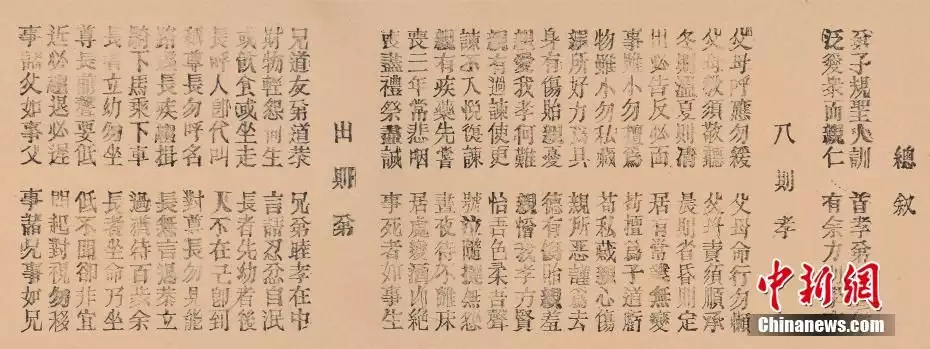 總叙
弟子規聖人訓 首孝弟
泛愛衆而親仁 有余力
八則孝
父母呼應勿緩 父母命行勿懶
父母教須敬聽 父母責須順承
冬則溫夏則凊 晨則省昏則定
出必告反必面 居有常業無變
事雖小勿擅爲 苟擅爲子道虧
物雖小勿私藏 苟私藏親心傷
親所好力爲具 親所惡謹爲去
身有傷貽親憂 德有傷貽親羞
親愛我孝何難 親憎我孝方賢
親有過諫使更 怡吾色柔吾聲
諫不入悅復諫 號泣隨撻無怨
親有疾藥先嘗 晝夜待不離床
喪三年常悲咽 居處變酒肉絕
喪盡禮祭盡誠 事死者如事生
出則弟
兄道友弟道恭 兄弟睦孝在中
財物輕怨何生 言語忍忿自泯
或飲食或坐走 長者先幼者後
長呼人卽代叫 人不在己卽到
稱尊長勿呼名 對尊長勿見能
路遇長疾趨揖 長無言退恭立
騎下馬乘下車 過猶待百步余
長者立幼勿坐 長者坐命乃坐
尊長前聲要低 低不聞卻非宜
近必趨退必遲 問起對視勿移
事諸父如事父 事諸兄如事兄
中新网
Chinanews.com